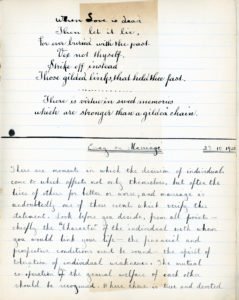 When Love is dear
Then let it lie,
For ever buried with the past
Vex not thyself,
Strike off instead
Those gilded links that held thee fast.
There is virtue in sweet memories
which are stronger than a gilded chain.
Essay on Marriage
There are moments in which the decision of individuals
come to which affects not only themselves, but often the
lives of others for better or worse, and marriage is
undoubtedly one of these events which verify this
statement. Look before you decide, from all points -
chiefly the "Character" of the individual with whom
you would link your life - the financial and
prospective conditions and to ward the spirit of
toleration of individual weakness. The mutual
co-operation of the general welfare of each other
should be recognised. Where there is true and devoted